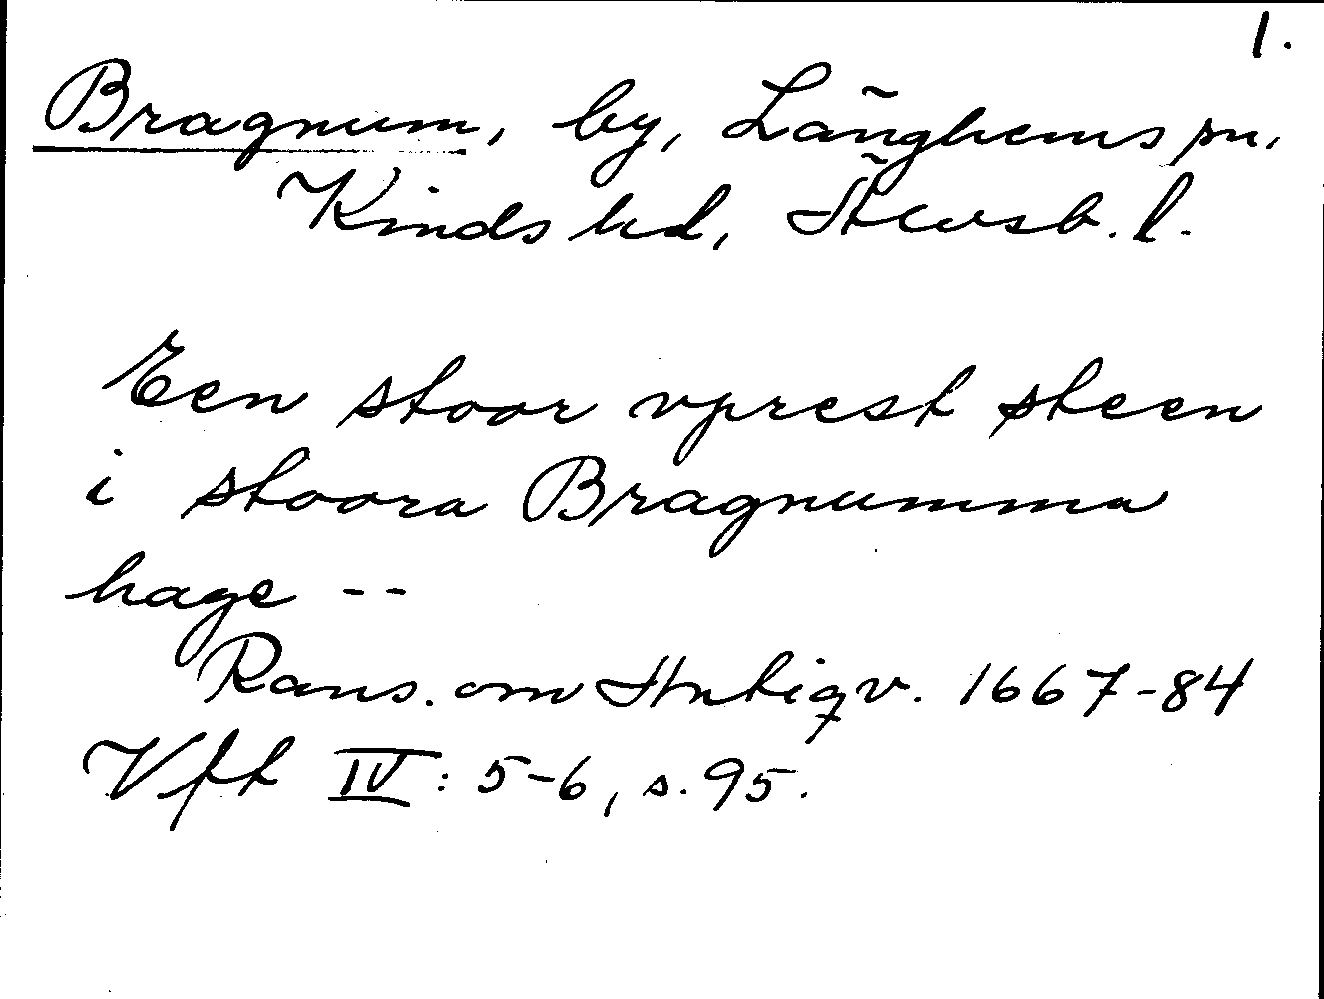 1.
Bragnum, by, Länghems sn.
Kinds hd, Älvsb. l.
Een stoor vprest steen
i stoora Bragnumma
hage --
Rans. om Antiqv. 1667-84
Vft IV: 5-6, s. 95.